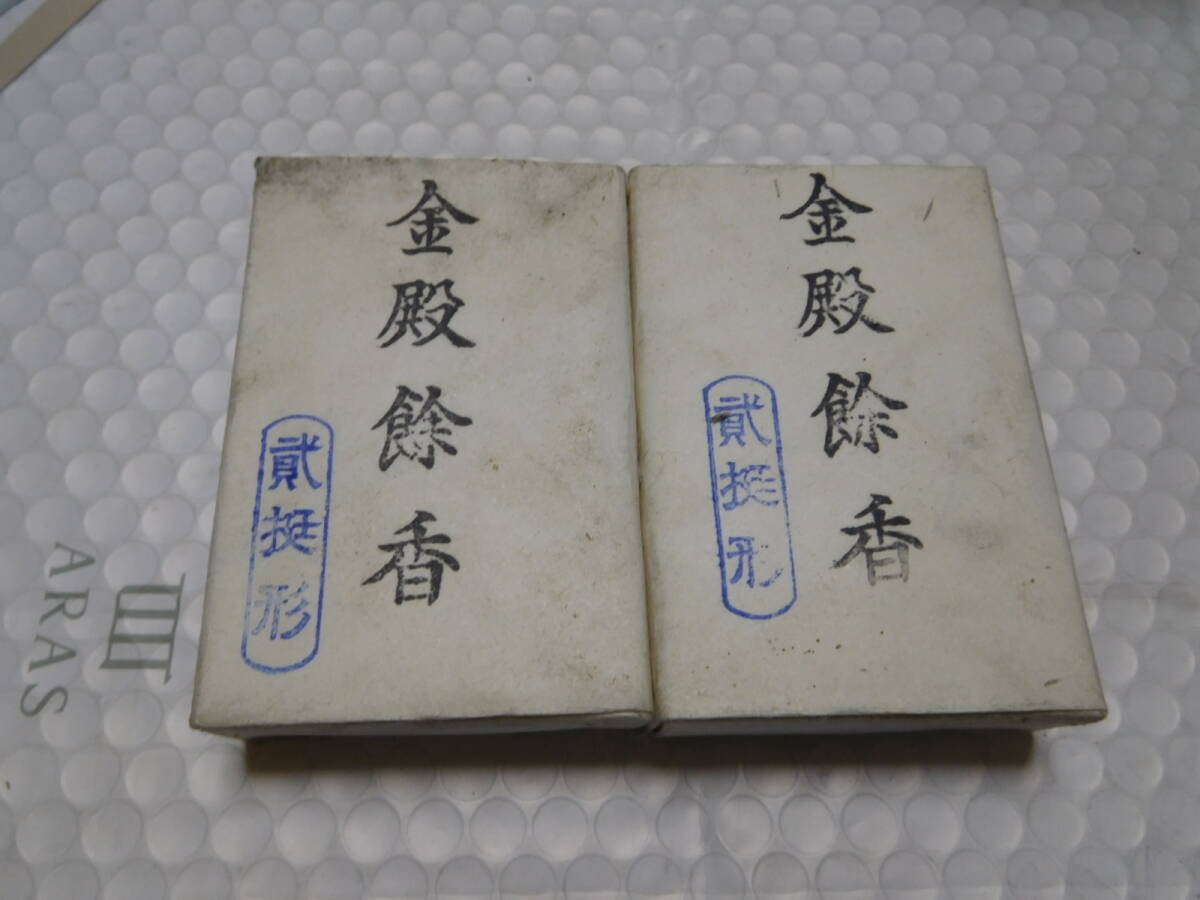 金殿餘香
貳挺形
金殿餘香
貳挺形
ARAS